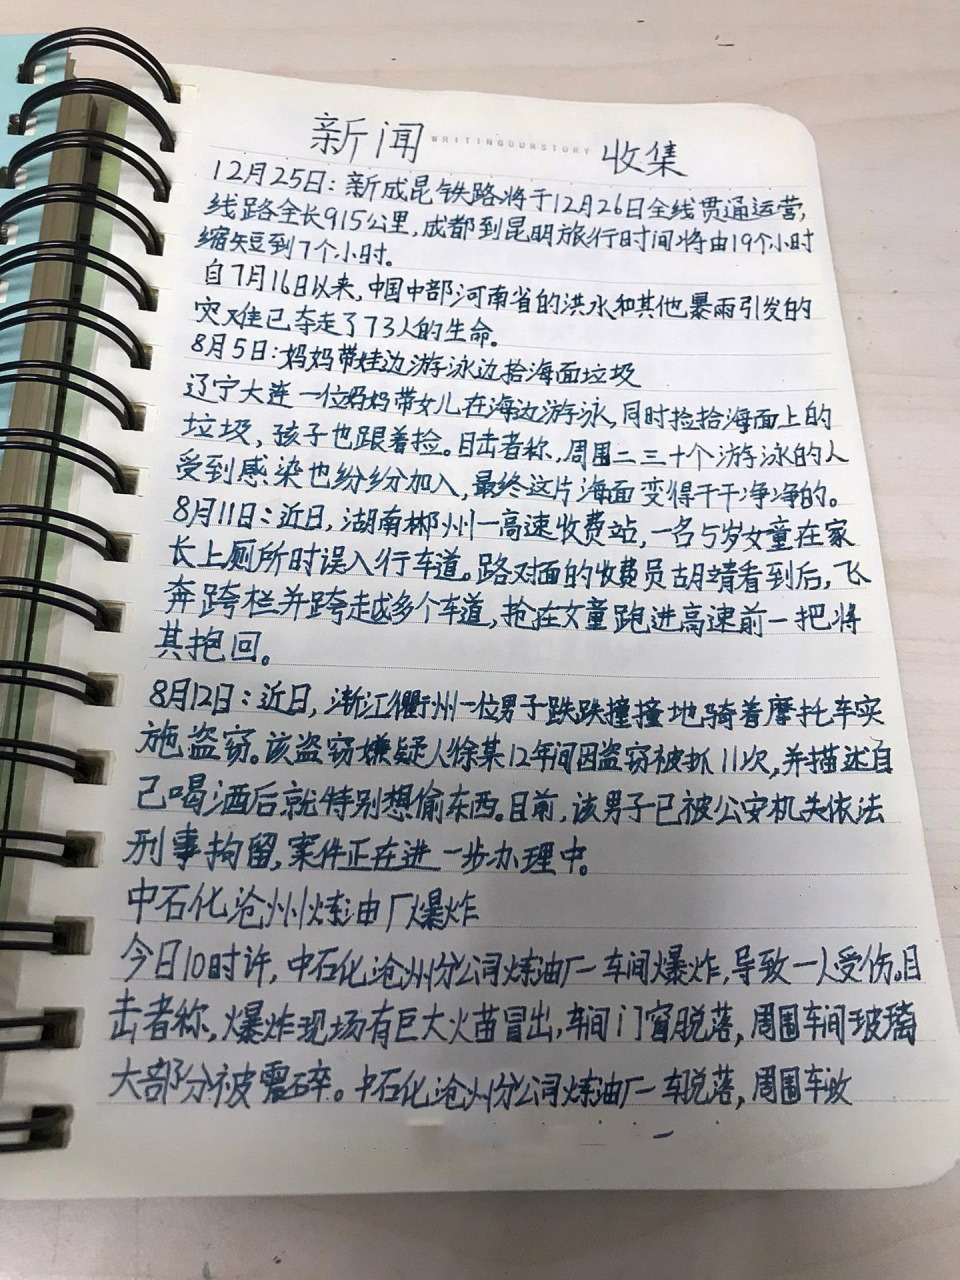 新闻 WRITINGOURSTORY 收集
12月25日：新成昆铁路将于12月26日全线贯通运营，
线路全长915公里，成都到昆明旅行时间将由19个小时
缩短到7个小时。
自7月16日以来，中国中部河南省的洪水和其他暴雨引发的
灾难已夺走了73人的生命。
8月5日：妈妈带娃边游泳边拾海面垃圾
辽宁大连一位妈妈带女儿在海边游泳，同时捡拾海面上的
垃圾，孩子也跟着捡。目击者称，周围二三十个游泳的人
受到感染也纷纷加入，最终这片海面变得干干净净的。
8月11日：近日，湖南郴州一高速收费站，一名5岁女童在家
长上厕所时误入行车道。路对面的收费员胡靖看到后，飞
奔跨栏并跨越多个车道，抢在女童跑进高速前一把将
其抱回。
8月12日：近日，浙江衢州一位男子跌跌撞撞地骑着摩托车实
施盗窃。该盗窃嫌疑人徐某12年间因盗窃被抓11次，并描述自
己喝酒后就特别想偷东西。目前，该男子已被公安机关依法
刑事拘留，案件正在进一步办理中。
中石化沧州炼油厂爆炸
今日10时许，中石化沧州分公司炼油厂一车间爆炸，导致一人受伤。目
击者称，爆炸现场有巨大火苗冒出，车间门窗脱落，周围车间玻璃
大部分被震碎。中石化沧州分公司炼油厂一车脱落，周围车改